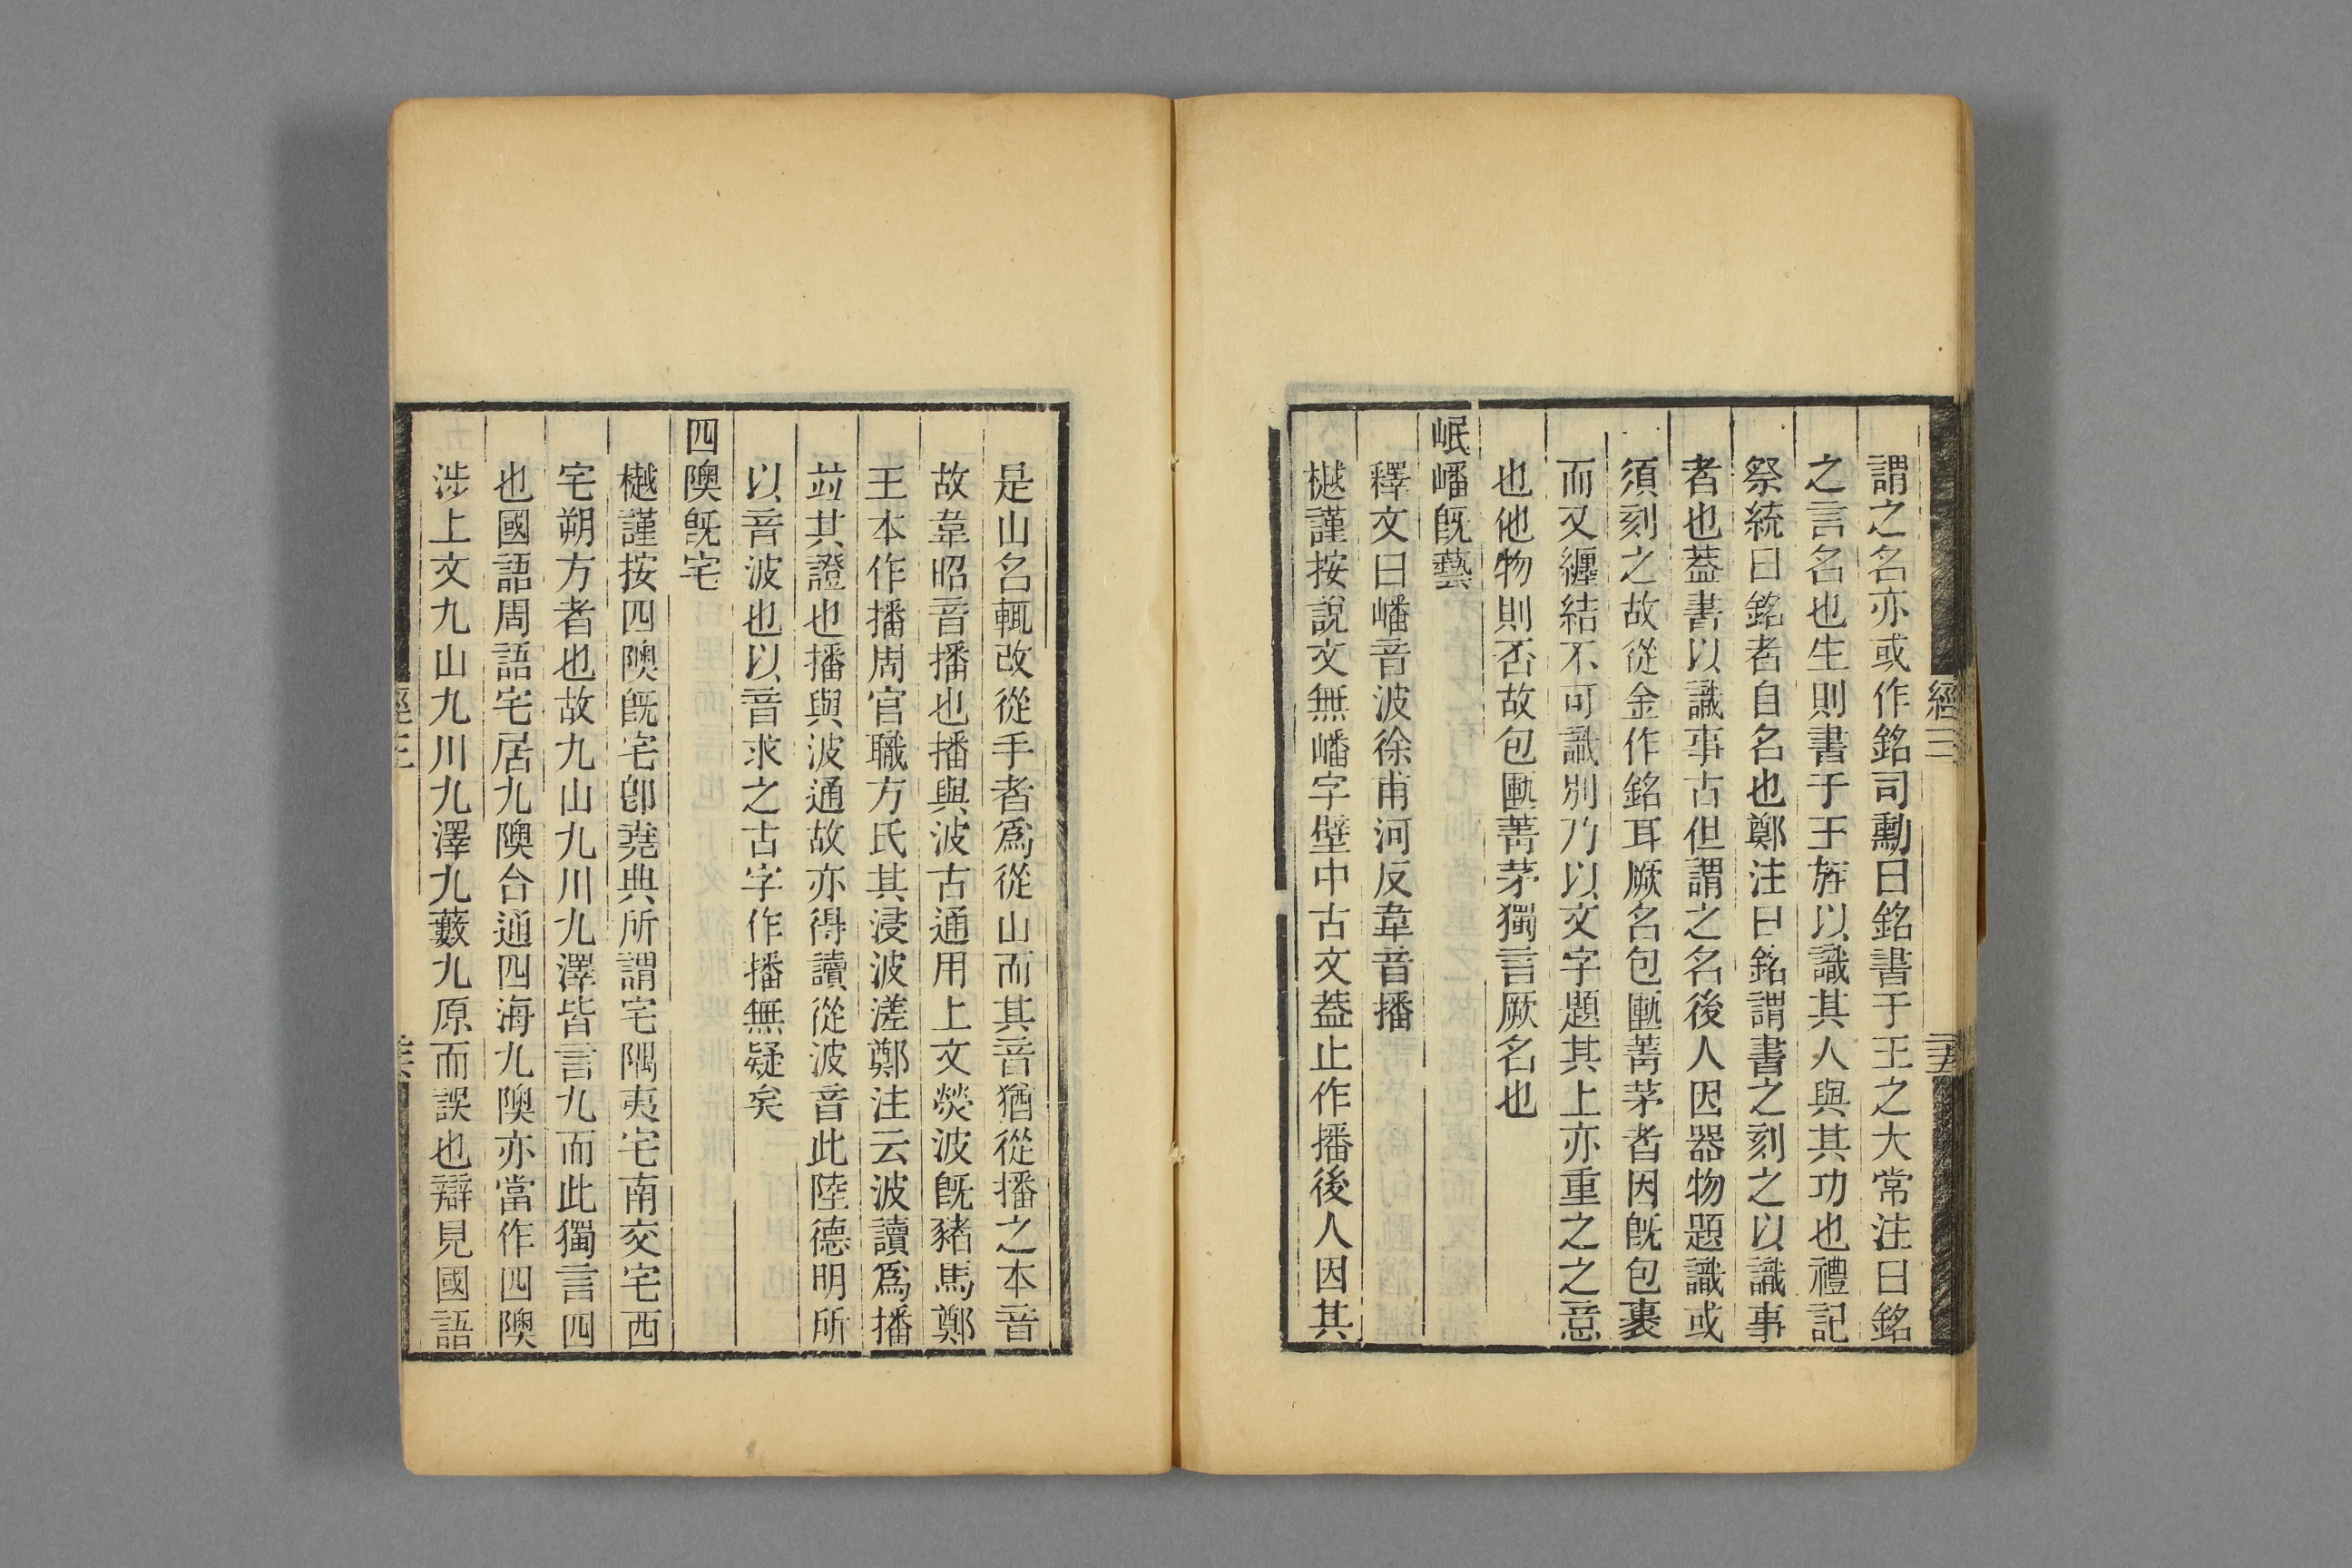 經三
二十五
謂之名亦或作銘司勳曰銘書于王之大常注曰銘
之言名也生則書于王旌以識其人與其功也禮記
祭統曰銘者自名也鄭注曰銘謂書之刻之以識事
者也葢書以識事古但謂之名後人因器物題識或
須刻之故從金作銘耳厥名包匭菁茅者因旣包裹
而又纏結不可識別乃以文字題其上亦重之之意
也他物則否故包匭菁茅獨言厥名也
岷嶓旣藝
釋文曰嶓音波徐甫河反韋音播
樾謹按說文無嶓字壁中古文葢止作播後人因其
是山名輒改從手者爲從山而其音猶從播之本音
故韋昭音播也播與波古通用上文熒波旣豬馬鄭
王本作播周官職方氏其浸波溠鄭注云波讀爲播
竝其證也播與波通故亦得讀從波音此陸德明所
以音波也以音求之古字作播無疑矣
四隩旣宅
樾謹按四隩旣宅卽堯典所謂宅隅夷宅南交宅西
宅朔方者也故九山九川九澤皆言九而此獨言四
也國語周語宅居九隩合通四海九隩亦當作四隩
涉上文九山九川九澤九藪九原而誤也辯見國語
經三